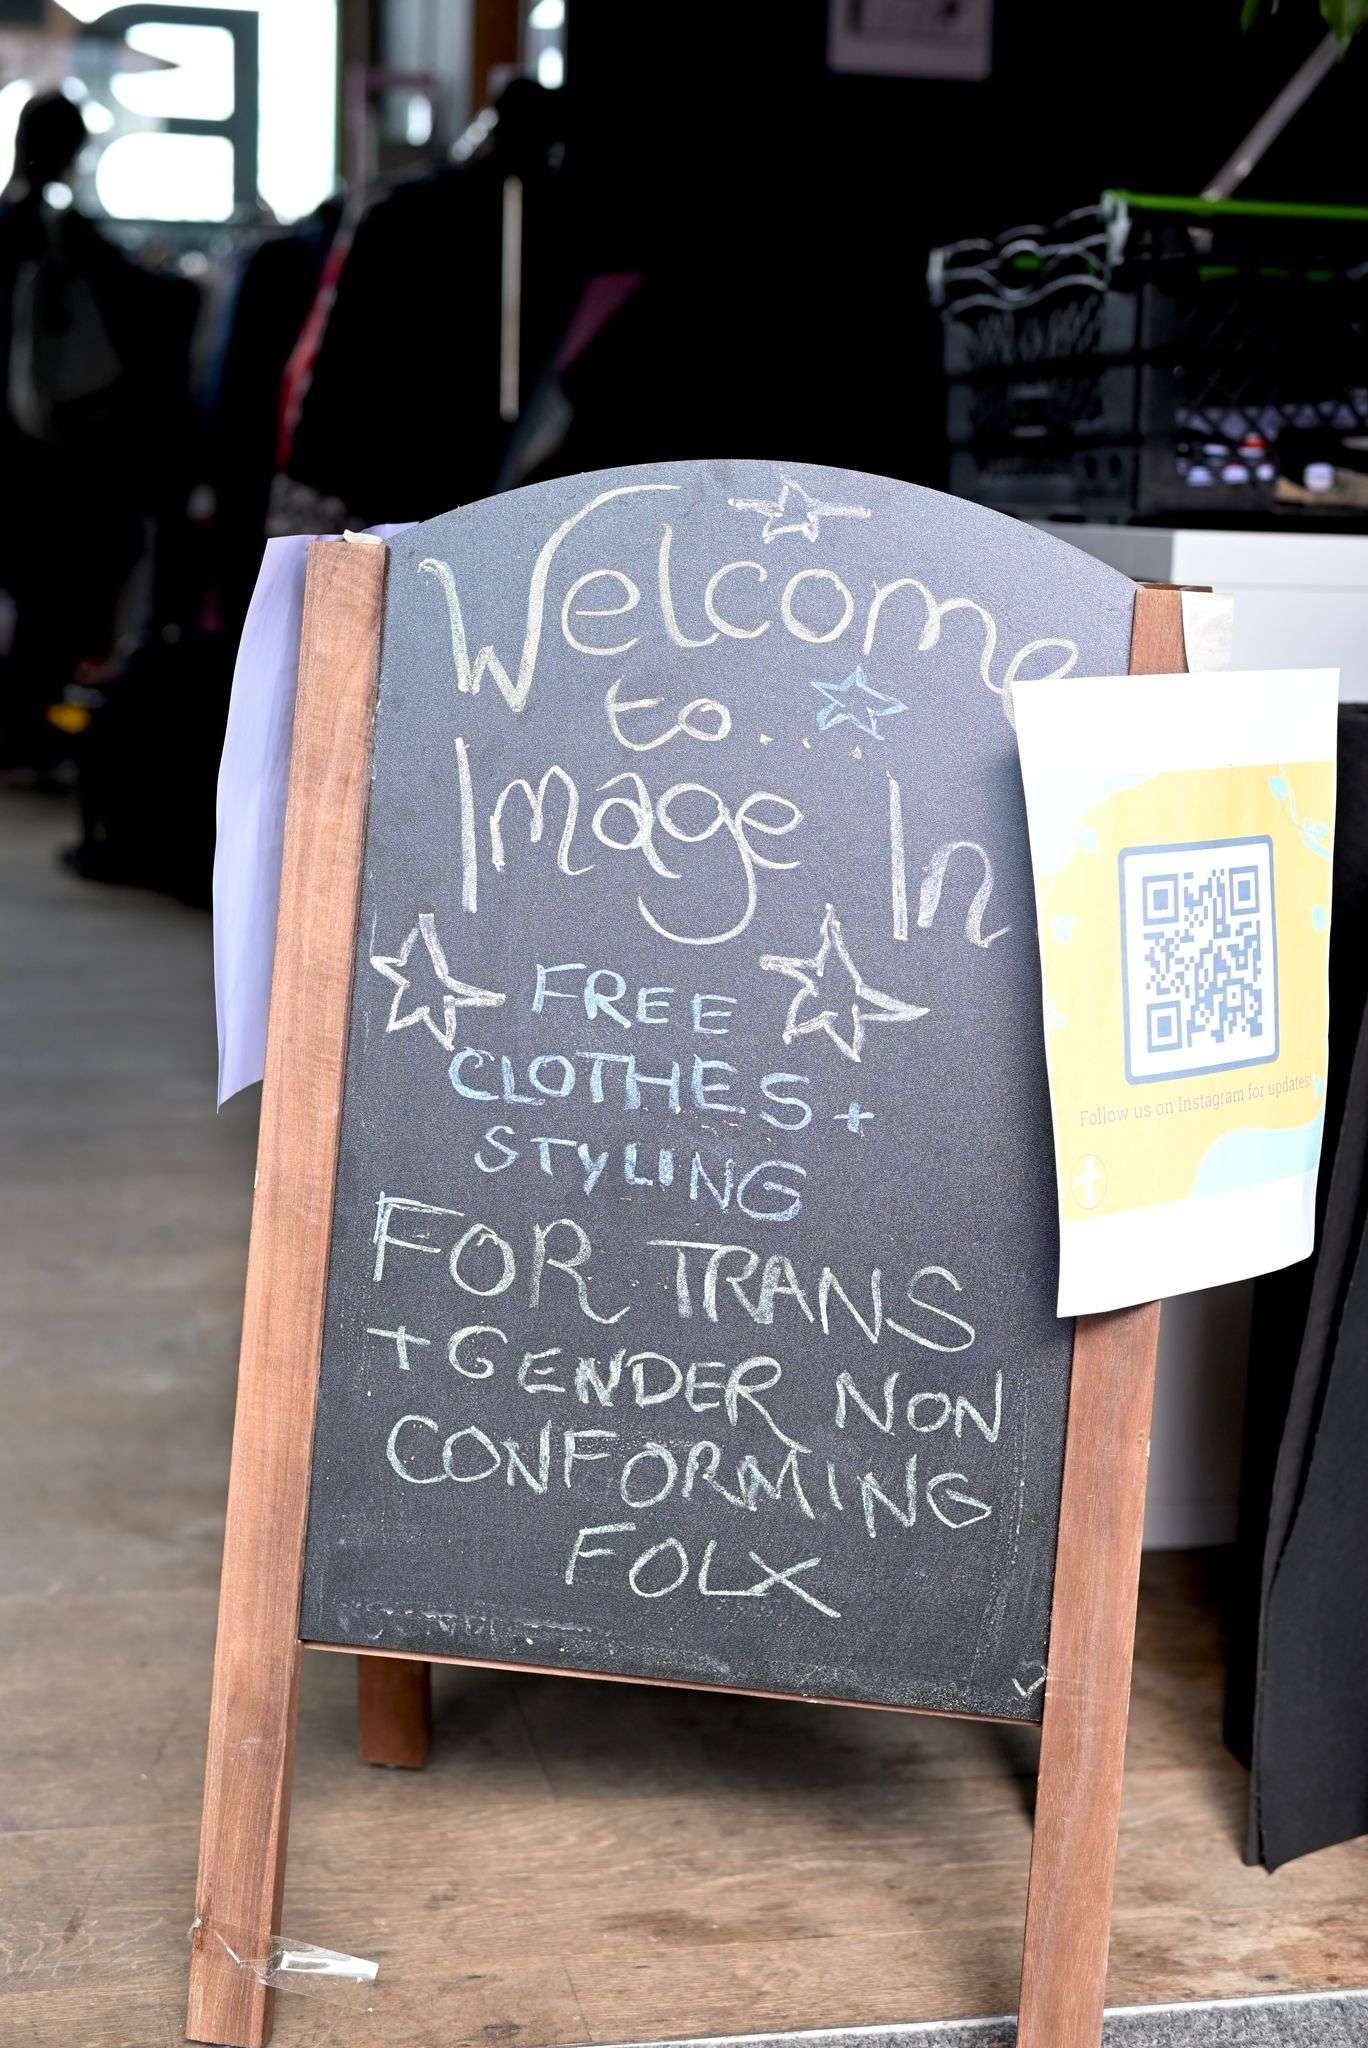 Welcome
to...
Image In
FREE
CLOTHES +
STYLING
FOR TRANS
+ GENDER NON
CONFORMING
FOLX
Follow us on Instagram for updates!